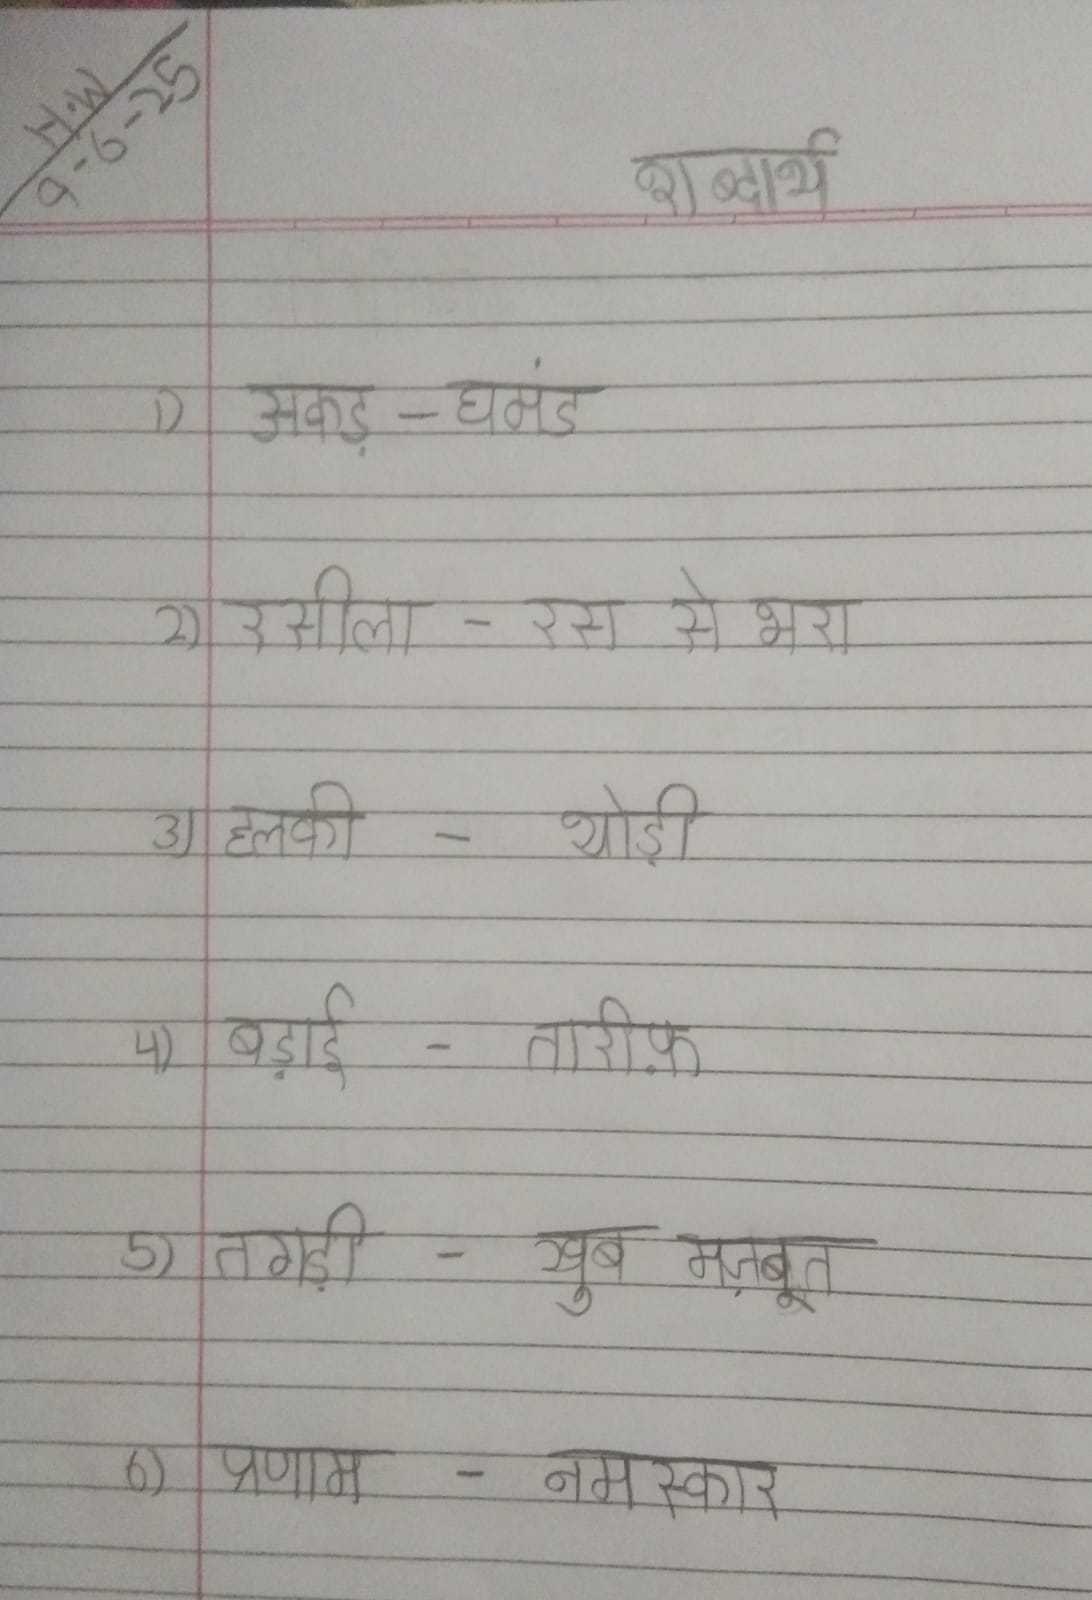 H.W
9-6-25
शब्दार्थ
1) अकड़ - घमंड
2) रसीला - रस से भरा
3) हलकी - थोड़ी
4) बड़ाई - तारीफ़
5) तगड़ी - खुब मज़बूत
6) प्रणाम - नमस्कार